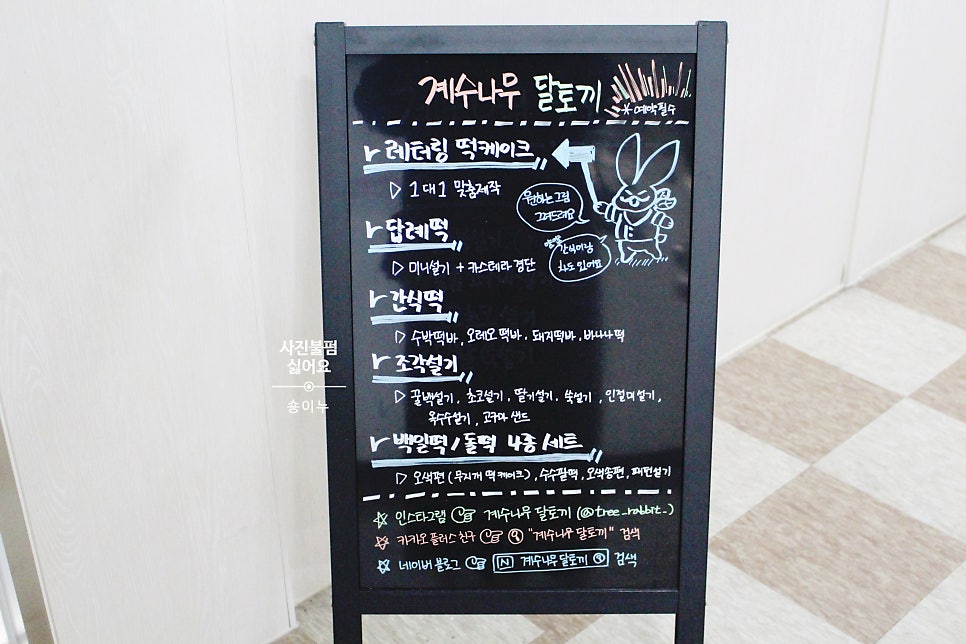 계수나무 달토끼
*예약필수
레터링 떡케이크
▷ 1대1 맞춤제작
원하는 그림
그려드려요
답례떡
▷ 미니설기 + 카스테라 경단
간식이랑
차도 있어요
간식떡
▷ 수박떡바, 오레오 떡바, 돼지떡바, 바나나떡
조각설기
▷ 꿀백설기, 초코설기, 딸기설기, 쑥설기, 인절미설기,
옥수수설기, 고구마 샌드
백일떡/돌떡 4종 세트
▷ 오색편 (무지개 떡케이크), 수수팥떡, 오색송편, 패턴설기
☆ 인스타그램 계수나무 달토끼 (@tree_rabbit_)
☆ 카카오 플러스 친구 "계수나무 달토끼" 검색
☆ 네이버 블로그 N 계수나무 달토끼 검색
사진불펌
싫어요
숑이누